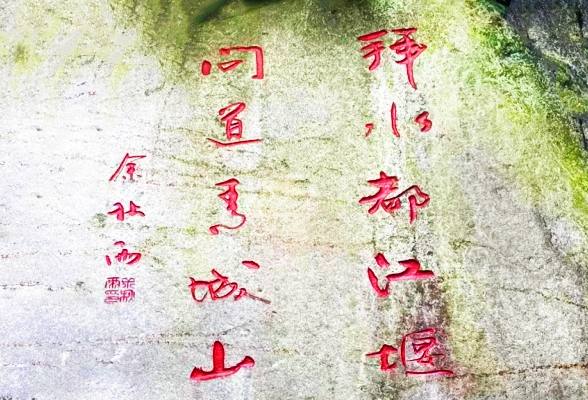 拜水都江堰
问道青城山
余秋雨